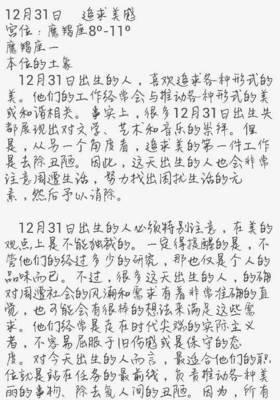 12月31日 追求美感
宫位:魔羯座8°-11°
魔羯座一
本位的土象
12月31日出生的人,喜欢追求各种形式的
美。他们的工作经常会与推动各种形式的美
或和谐相关。事实上,很多12月31日出生头
都展现出对文学、艺术和音乐的崇拜。但
是,从另一个角度看,追求美的第一件工作
是去除丑陋。因此,这天出生的人也会非常
注意周遭生活,努力找出困扰生活的元
素,然后予以消除。
12月31日出生的人必须特别注意,在美的
观点上是不能独裁的。一定得提醒的是,不
管他们的经过多少的研究,那也仅是个人的
品味而已。不过,很多这天出生的人,的确
对周遭社会的风潮和需求有着非常准确的直
觉,也可能会有很棒的想法来满足这些需
求。他们经常是在在时代尖端的实际主义
者,不容易屈服于旧伤感或是保守的态
度。对今天出生的人而言,最适合他们的职
位就是站在任务的最前线,负责推动各种美
丽的事物、除去气人间的丑陋。因为,所有